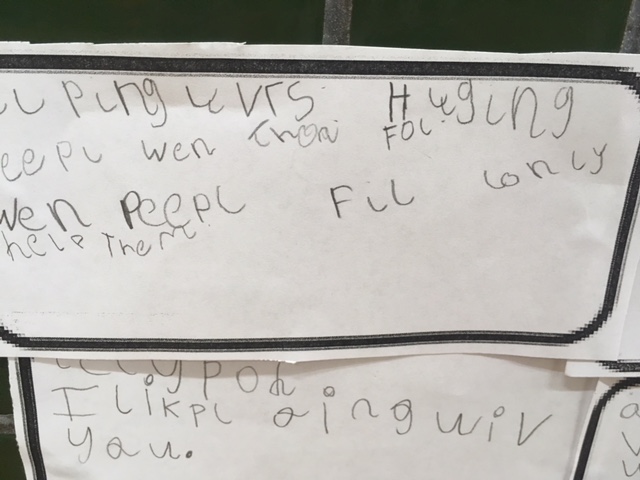 ll ping uvrs. Huging
eepl wen thoni Fol.
wen Peepl Fil lonly
help them.
I likpl aing wiv
you.